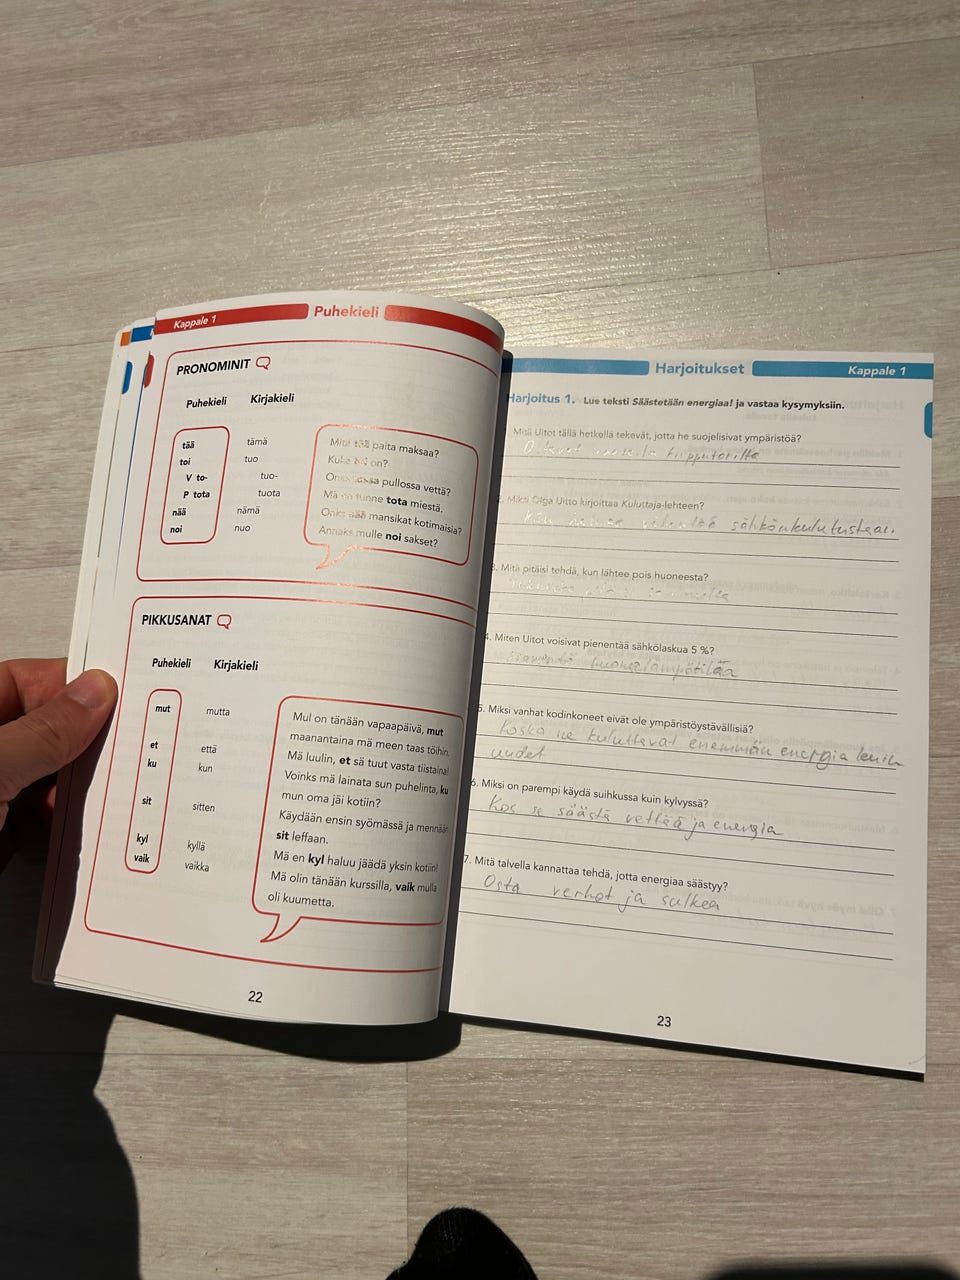 Kappale 1
Puhekieli
PRONOMINIT
Puhekieli Kirjakieli
tää tämä
toi tuo
V to- tuo-
P tota tuota
nää nämä
noi nuo
Mitä tää paita maksaa?
Kuka toi on?
Onks tossa pullossa vettä?
Mä en tunne tota miestä.
Onks nää mansikat kotimaisia?
Annaks mulle noi sakset?
PIKKUSANAT
Puhekieli Kirjakieli
mut mutta
et että
ku kun
sit sitten
kyl kyllä
vaik vaikka
Mul on tänään vapaapäivä, mut
maanantaina mä meen taas töihin.
Mä luulin, et sä tuut vasta tiistaina!
Voinks mä lainata sun puhelinta, ku
mun oma jäi kotiin?
Käydään ensin syömässä ja mennään
sit leffaan.
Mä en kyl haluu jäädä yksin kotiin!
Mä olin tänään kurssilla, vaik mulla
oli kuumetta.
22
Harjoitukset
Kappale 1
Harjoitus 1. Lue teksti Säästetään energiaa! ja vastaa kysymyksiin.
Mitä Uitot tällä hetkellä tekevät, jotta he suojelisivat ympäristöä?
kirpputorilta
2. Miksi Olga Uitto kirjoittaa Kuluttaja-lehteen?
sähkönkulutustaan.
3. Mitä pitäisi tehdä, kun lähtee pois huoneesta?
4. Miten Uitot voisivat pienentää sähkölaskua 5 %?
huonelämpötilaa
5. Miksi vanhat kodinkoneet eivät ole ympäristöystävällisiä?
koska ne kuluttavat enemmän energia kuin
uudet
6. Miksi on parempi käydä suihkussa kuin kylvyssä?
Kos se säästä vettää ja energia
7. Mitä talvella kannattaa tehdä, jotta energiaa säästyy?
Osta verhot ja sulkea
23